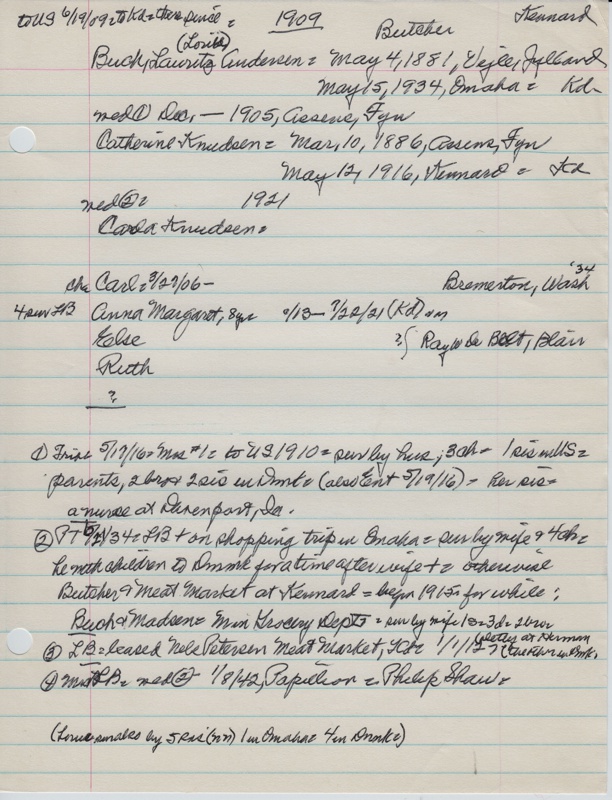 to US 6/19/09 = to Kd = there since = 1909 Butcher Kennard
(Louis)
Buck, Lauritz Andersen = May 4, 1881, Vejle, Jylland
May 15, 1934, Omaha = Kd-
med ① Dec, — 1905, Assens, Fyn
Catherine Knudsen = Mar, 10, 1886, Assens, Fyn
May 12, 1916, Kennard = Kd
med ② = 1921
Carla Knudsen =
'34
ch = Carl = 3/27/06 - Bremerton, Wash
4 surv LB Anna Margaret, 8 yr = 9/13 - 7/22/21 (Kd)
Else ?{ Ray De Bolt, Blair
Ruth
?
① 5/17/16 = Mrs #1 = to US 1910 = surv by hus; 3 ch = 1 sis in US =
parents, 2 bro & 2 sis in Dmk = (also Ent 5/19/16) = her sis =
a nurse at Davenport, Ia.
② /34 = LB + on shopping trip in Omaha = surv by wife & 4 ch =
he children to Dmmk for a time after wife + = otherwise
Butcher & Meat Market at Kennard = began 1915 for while;
Buck & Madsen = Grocery Dept = surv by wife 3 d = 2 bro
③ LB = leased Nels Petersen Meat Market, Kd = 1/1/12 = at Herman
④ Mrs LB = med ② - 1/8/42, Papillion = Philip Shaw =
( by 5 sis (nn) 1 in Omaha = 4 in Dmmk)